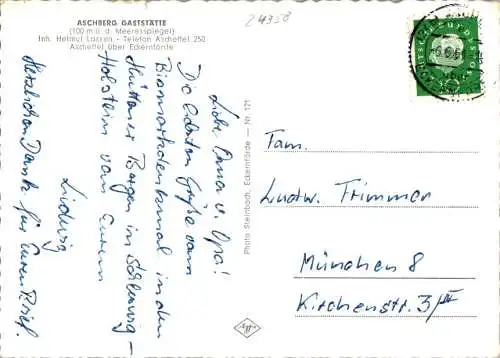 ASCHBERG GASTSTÄTTE
(100 m ü. d. Meeresspiegel)
Inh. Helmut Lassen - Telefon Ascheffel 250
Ascheffel über Eckernförde
24358
Liebe Oma u. Opa!
Die besten Grüße vom
Bismarckdenkmal in den
Hüttener Bergen in Schleswig-
Holstein von Eurem
Ludwig
Herzlichen Dank für Euren Brief.
Photo Steinbach, Eckernförde — Nr. 121
Fam.
Ludw. Trimmer
München 8
Kirchenstr. 3/III
Agfa
DEUTSCHE BUNDESPOST